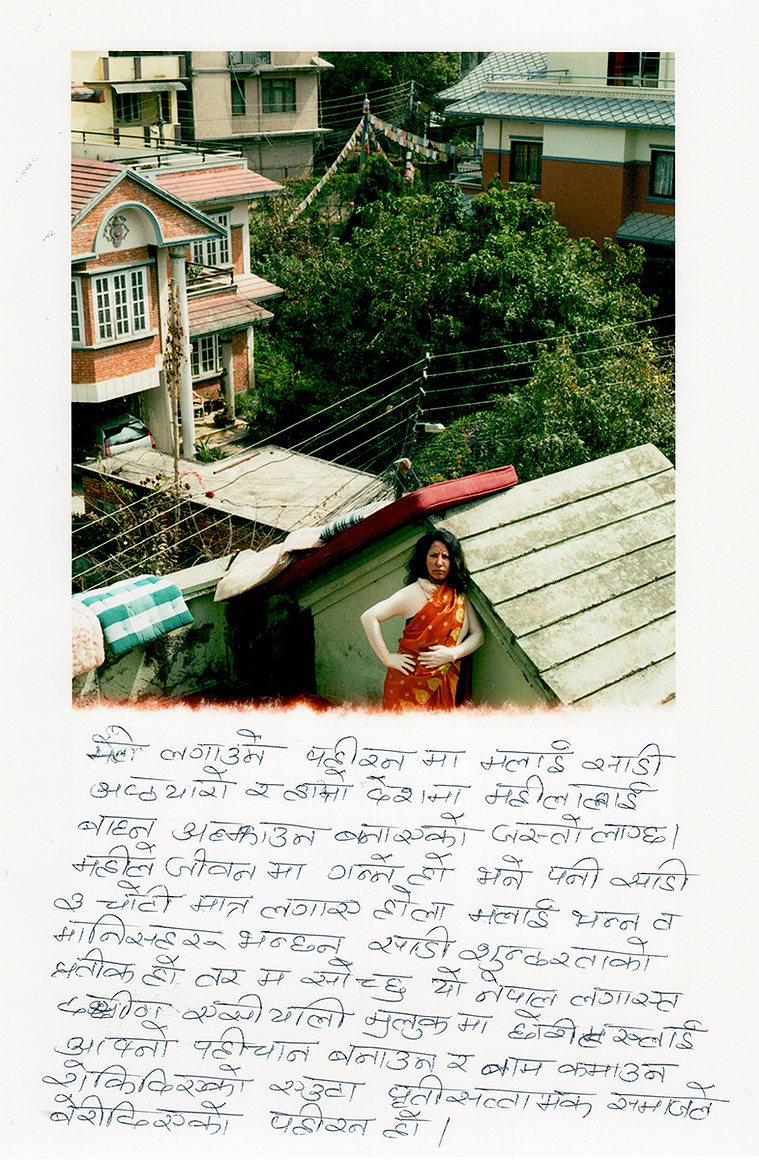 मैले लगाउने पहीरन मा मलाई साडी
अप्ठयारो र हाम्रो देशमा महीलालाई
बाध्न अल्झाउन बनाएको जस्तो लाग्छ।
महीले जीवन मा गन्ने हो भने पनी साडी
३ चोटी मात्र लगाए होला मलाई भन्न त
मानिसहरू भन्छन् साडी शुन्दरताको
प्रतीक हो तर म सोच्छु यो नेपाल लगाएत
दक्षीण एसीयाली मुलुक मा छोरीहरूलाई
आफ्नो पहीचान बनाउन र नाम कमाउन
रोकिदिएको एउटा पृतीसत्तात्मक समाजले
बेरीदिएको पहीरन हो।